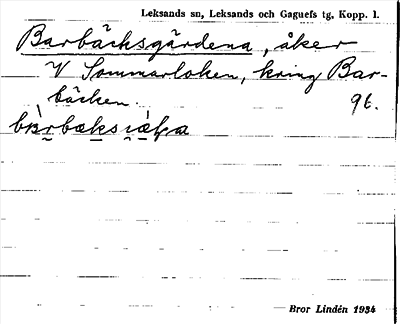 Leksands sn, Leksands och Gagnefs tg, Kopp. l.
Barbäcksgärdena, åker
V Sommarloken, kring Bar-
bäcken.
9t.
Bror Lindén 1934